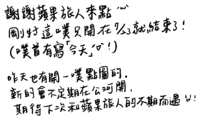 謝謝蘋果旅人來點
剛好這噗只開在7/3就結束了!
(噗首有寫「今天」)
昨天也有開一噗點圖的,
新的會不定期在公河開,
期待下次和蘋果旅人的不期而遇